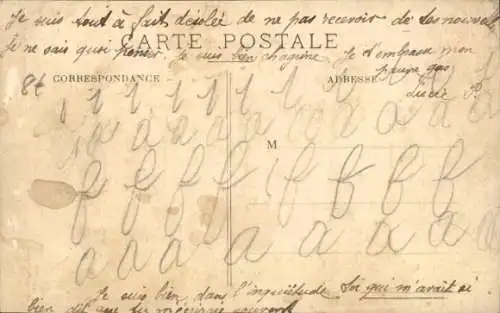 Je suis tout à fait désolée de ne pas recevoir de tes nouvelles
CARTE POSTALE
Je ne sais quoi penser. Je suis bien chagrine. Je t'embrasse mon
pauvre gas
84 CORRESPONDANCE
ADRESSE
Lucie P.
1 1 1 1 1 1 1
a a a a a a a a a a
M
f f f f f f f f f
a a a a a a a a a
Je suis bien dans l'inquiétude toi qui m'avait si
bien dit que tu m'écrirais souvent